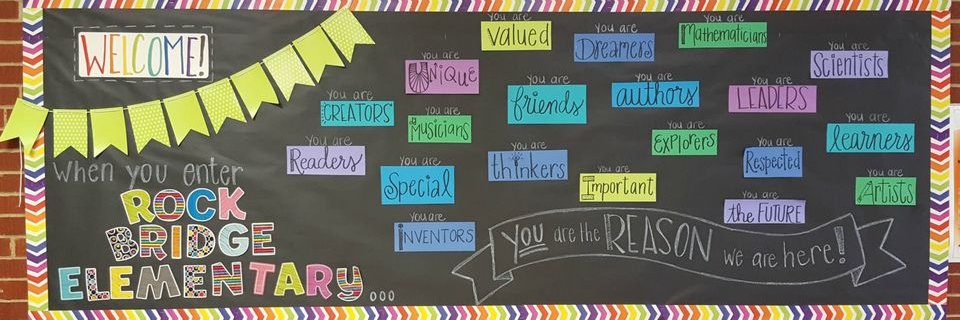 WELCOME!
When you enter
ROCK
BRIDGE
ELEMENTARY...
you are
valued
you are
Dreamers
you are
Mathematicians
you are
Unique
you are
Scientists
you are
CREATORS
you are
Musicians
you are
friends
you are
authors
you are
LEADERS
you are
Readers
you are
Special
you are
thinkers
you are
Explorers
you are
Respected
you are
learners
you are
Important
you are
the FUTURE
you are
Artists
you are
INVENTORS
you are the REASON we are here!